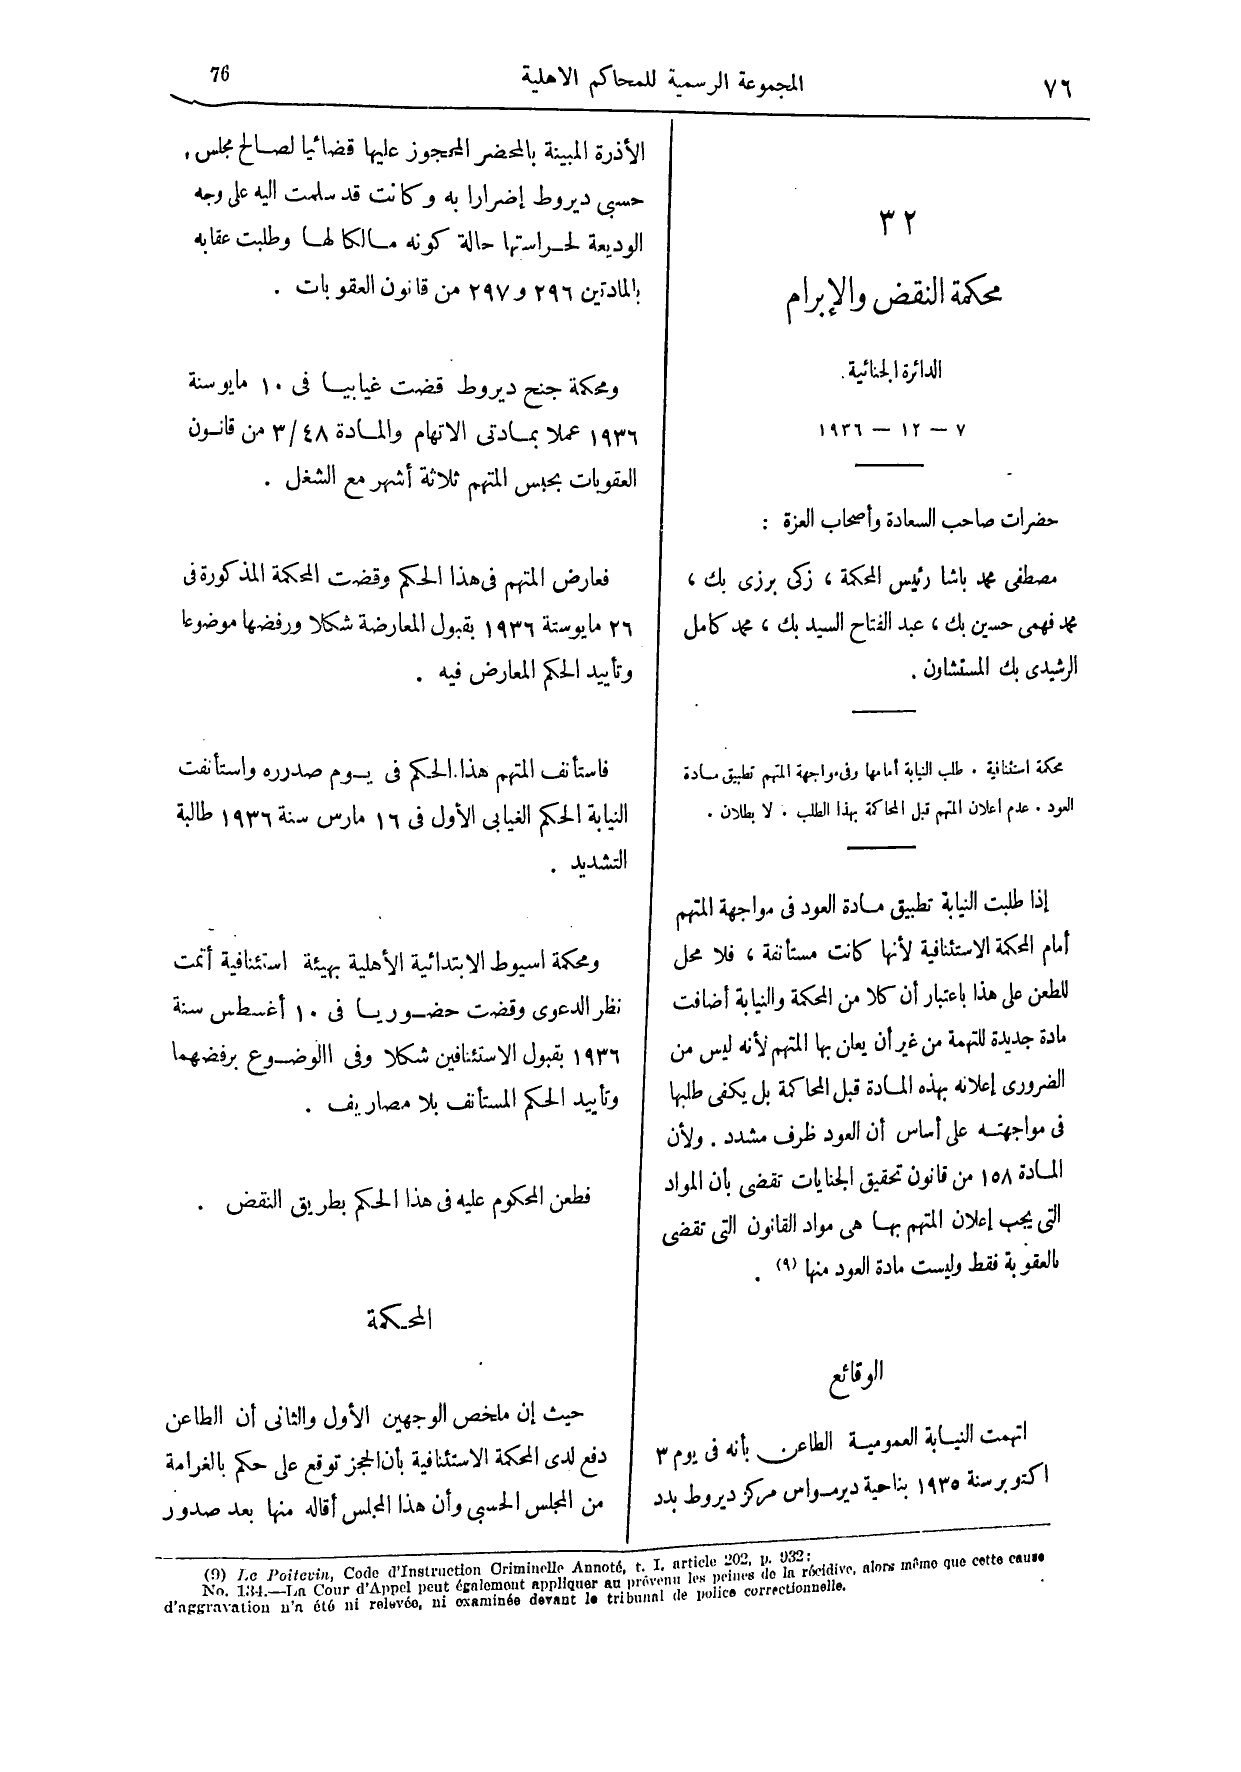 ٧٦
المجموعة الرسمية للمحاكم الاهلية
76
٣٢
محكمة النقض والإبرام
الدائرة الجنائية.
٧ — ١٢ — ١٩٣٦
حضرات صاحب السعادة وأصحاب العزة :
مصطفى محمد باشا رئيس المحكمة ، زكى برزى بك ،
محمد فهمى حسين بك ، عبد الفتاح السيد بك ، محمد كامل
الرشيدى بك المستشاون .
محكمة استئنافية . طلب النيابة أمامها وفى مواجهة المتهم تطبيق مادة
العود . عدم اعلان المتهم قبل المحاكمة بهذا الطلب . لا بطلان .
إذا طلبت النيابة تطبيق مادة العود فى مواجهة المتهم
أمام المحكمة الاستئنافية لأنها كانت مستأنفة ، فلا محل
للطعن على هذا باعتبار أن كلا من المحكمة والنيابة أضافت
مادة جديدة للتهمة من غير أن يعان بها المتهم لأنه ليس من
الضرورى إعلانه بهذه المادة قبل المحاكمة بل يكفى طلبها
فى مواجهته على أساس أن العود ظرف مشدد . ولأن
المادة ١٥٨ من قانون تحقيق الجنايات تقضى بأن المواد
التى يجب إعلان المتهم بها هى مواد القانون التى تقضى
بالعقوبة فقط وليست مادة العود منها (٩) .
الوقائع
اتهمت النيابة العمومية الطاعن بأنه فى يوم ٣
اكتوبر سنة ١٩٣٥ بناحية ديرمواس مركز ديروط بدد
الأذرة المبينة بالمحضر المحجوز عليها قضائيا لصالح مجلس
حسبى ديروط إضرارا به وكانت قد سلمت اليه على وجه
الوديعة لحراستها حالة كونه مالكا لها وطلبت عقابه
بالمادتين ٢٩٦ و ٢٩٧ من قانون العقوبات .
ومحكمة جنح ديروط قضت غيابيا فى ١٠ مايو سنة
١٩٣٦ عملا بمادتى الاتهام والمادة ٣/٤٨ من قانون
العقوبات بحبس المتهم ثلاثة أشهر مع الشغل .
فعارض المتهم فى هذا الحكم وقضت المحكمة المذكورة فى
٢٦ مايوسنة ١٩٣٦ بقبول المعارضة شكلا ورفضها موضوعا
وتأييد الحكم المعارض فيه .
فاستأنف المتهم هذا الحكم فى يوم صدرره واستأنفت
النيابة الحكم الغيابى الأول فى ١٦ مارس سنة ١٩٣٦ طالبة
التشديد .
ومحكمة اسيوط الابتدائية الأهلية بهيئة استئنافية أتمت
نظر الدعوى وقضت حضوريا فى ١٠ أغسطس سنة
١٩٣٦ بقبول الاستئنافين شكلا وفى االوضوع برفضهما
وتأييد الحكم المستأنف بلا مصاريف .
فطعن المحكوم عليه فى هذا الحكم بطريق النقض .
المحكمة
حيث إن ملخص الوجهين الأول والثانى أن الطاعن
دفع لدى المحكمة الاستئنافية بأن الحجز توقع على حكم بالغرامة
من المجلس الحسبى وأن هذا المجلس أقاله منها بعد صدور
(9) Le Poitevin, Code d'Instruction Criminelle Annoté, t. I, article 202, p. 932:
No. 134.—La Cour d'Appel peut également appliquer au prévenu les peines de la récidive, alors même que cette cause
d'aggravation n'a été ni relevée, ni examinée devant le tribunal de police correctionnelle.